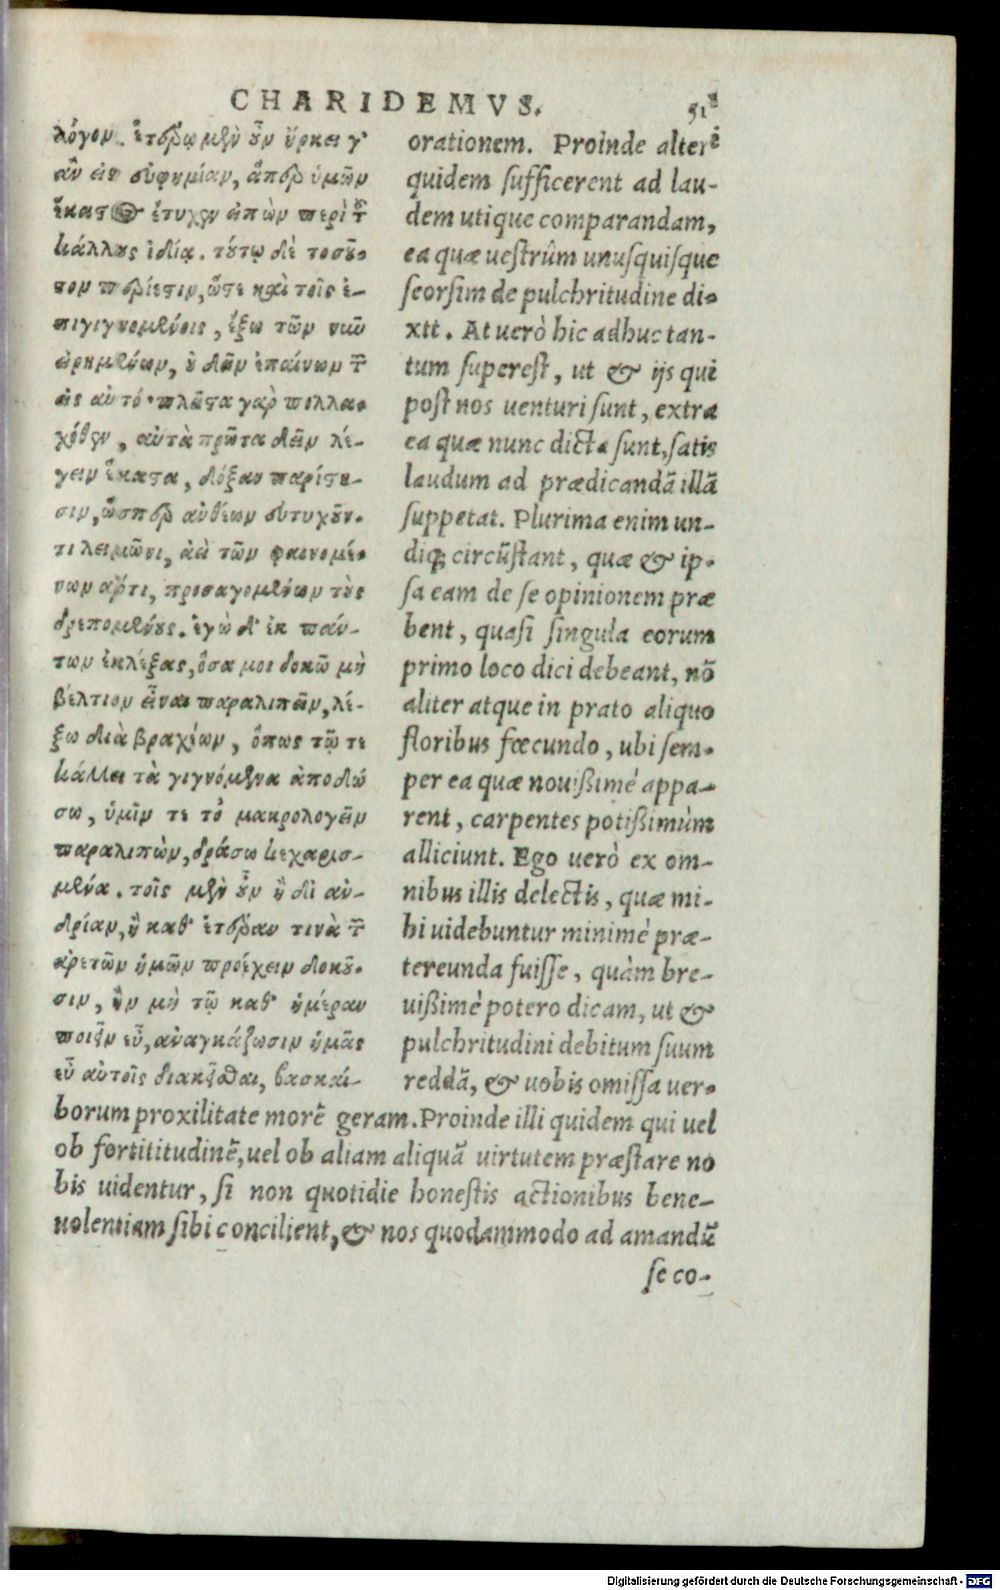 CHARIDEMVS. 51
λόγον. ἑτέρῳ μὲν οὖν ἤρκει γ'
ἂν εἰς εὐφημίαν, ἅπερ ὑμῶν
ἕκαστος ἔτυχεν εἰπὼν περὶ τοῦ
κάλλους ἰδίᾳ. τούτῳ δὲ τοσοῦ-
τον περίεστιν, ὥστε καὶ τοῖς ἐ-
πιγιγνομένοις, ἔξω τῶν νῦν
εἰρημένων, οὐ δεῖν ἐπαίνων τῶν
εἰς αὐτό. πλεῖστα γὰρ πολλα-
χόθεν, αὐτὰ πρῶτα δεῖν λέ-
γειν ἕκαστα, δόξαν παρίστη-
σιν, ὥσπερ ἀνθέων εὐτυχοῦν-
τι λειμῶνι, ἀεὶ τῶν φαινομέ-
νων ἄρτι, προσαγομένων τοὺς
δρεπομένους. ἐγὼ δ' ἐκ πάν-
των ἐκλέξας, ὅσα μοι δοκῶ μὴ
βέλτιον εἶναι παραλιπεῖν, λέ-
ξω διὰ βραχέων, ὅπως τῷ τε
κάλλει τὰ γιγνόμενα ἀποδώ
σω, ὑμῖν τε τὸ μακρολογεῖν
παραλιπὼν, δράσω κεχαρισ-
μένα. τοῖς μὲν οὖν ἢ δι' ἀν-
δρίαν, ἢ καθ' ἑτέραν τινὰ τῶν
ἀρετῶν ἡμῶν προέχειν δοκοῦ-
σιν, ἢν μὴ τῷ καθ' ἡμέραν
ποιεῖν εὖ, ἀναγκάζωσιν ἡμᾶς
εὖ αὐτοῖς διακεῖσθαι, βασκαί-
orationem. Proinde alteri
quidem sufficerent ad lau-
dem utique comparandam,
ea quæ uestrûm unusquisque
seorsim de pulchritudine di-
xtt. At uerò hic adhuc tan-
tum superest, ut & ijs qui
post nos uenturi sunt, extra
ea quæ nunc dicta sunt, satis
laudum ad prædicandã illã
suppetat. Plurima enim un-
diq; circũstant, quæ & ip-
sa eam de se opinionem præ
bent, quasi singula eorum
primo loco dici debeant, nõ
aliter atque in prato aliquo
floribus fœcundo, ubi sem-
per ea quæ nouißimé appa-
rent, carpentes potißimùm
alliciunt. Ego uerò ex om-
nibus illis delectis, quæ mi-
hi uidebuntur minimè præ-
tereunda fuisse, quàm bre-
uißimè potero dicam, ut &
pulchritudini debitum suum
reddã, & uobis omissa uer-
borum proxilitate morẽ geram. Proinde illi quidem qui uel
ob fortititudinẽ, uel ob aliam aliquã uirtutem præstare no
bis uidentur, si non quotidie honestis actionibus bene-
uolentiam sibi concilient, & nos quodammodo ad amandũ
se co-
Digitalisierung gefördert durch die Deutsche Forschungsgemeinschaft - DFG